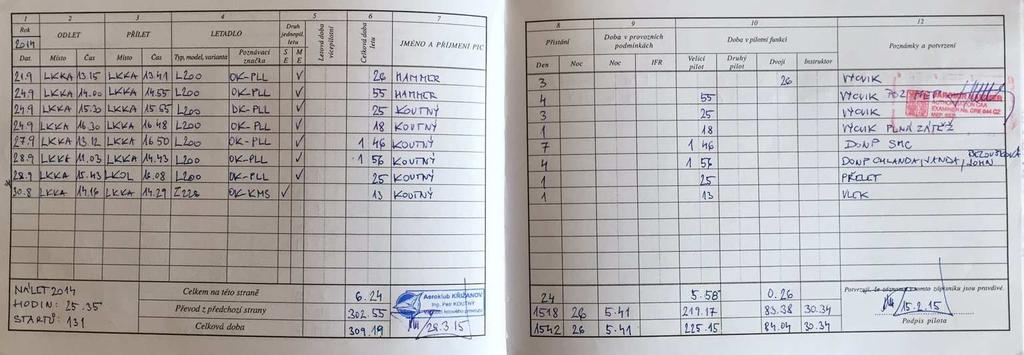 1 2 3 4 5 6 7
Rok 2014 ODLET PŘÍLET LETADLO Druh jednopil. letu Letová doba vícepilotní Celková doba letu JMÉNO A PŘÍJMENÍ PIC
Dat. Místo Čas Místo Čas Typ, model, varianta Poznávací značka S E M E
21.9 LKKA 13.15 LKKA 13.41 L200 OK-PLL ✓ 26 HAMMER
24.9 LKKA 14.00 LKKA 14.55 L200 OK-PLL ✓ 55 HAMMER
24.9 LKKA 15.30 LKKA 15.55 L200 OK-PLL ✓ 25 KOUTNÝ
24.9 LKKA 16.30 LKKA 16.48 L200 OK-PLL ✓ 18 KOUTNÝ
27.9 LKKA 13.12 LKKA 16.50 L200 OK-PLL ✓ 1 46 KOUTNÝ
28.9 LKKA 11.03 LKKA 14.43 L200 OK-PLL ✓ 1 56 KOUTNÝ
28.9 LKKA 15.43 LKOL 16.08 L200 OK-PLL ✓ 25 KOUTNÝ
30.8 LKKA 14.16 LKKA 14.29 Z226 OK-KMS ✓ 13 KOUTNÝ
NÁLET 2014
HODIN: 25.35
STARTŮ: 131
Celkem na této straně 6.24
Převod z předchozí strany 302.55
Celková doba 309.19
Aeroklub KŘIŽANOV
Ing. Petr KOUTNÝ
28.3.15
8 9 10 12
Přistání Doba v provozních podmínkách Doba v pilotní funkci Poznámky a potvrzení
Den Noc Noc IFR Velící pilot Druhý pilot Dvojí Instruktor
3 26 VÝCVIK
4 55 VÝCVIK
3 25 VÝCVIK
1 18 VÝCVIK PLNÁ ZÁTĚŽ
7 1 46 DONP SMC
4 1 56 DONP CHLANDA, VANDA, JOHN
1 25 PŘELET
1 13 VLEK
24 5.58 0.26
1518 26 5.41 219.17 83.38 30.34
1542 26 5.41 225.15 84.04 30.34
Potvrzuji, že záznamy v tomto zápisníku jsou pravdivé.
15.2.15
Podpis pilota